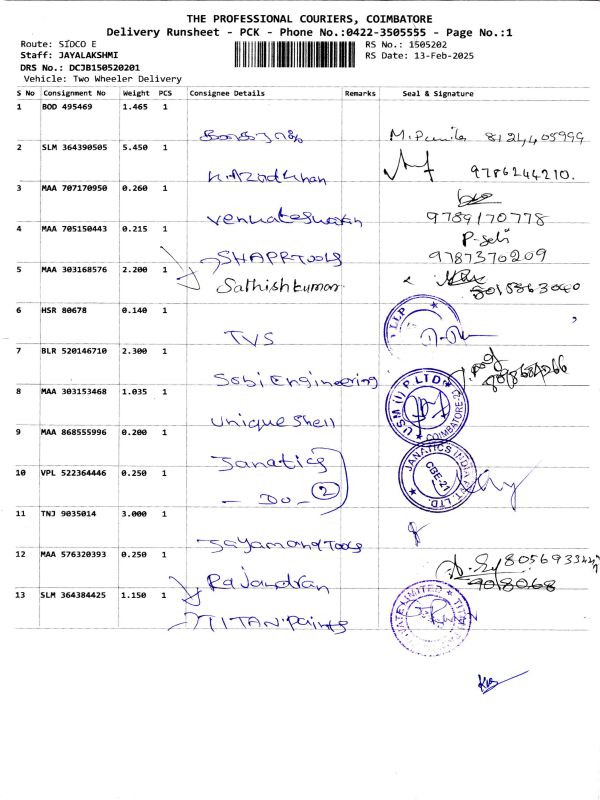 THE PROFESSIONAL COURIERS, COIMBATORE
Delivery Runsheet - PCK - Phone No.:0422-3505555 - Page No.:1
Route: SIDCO E
RS No.: 1505202
Staff: JAYALAKSHMI
RS Date: 13-Feb-2025
DRS No.: DCJB150520201
Vehicle: Two Wheeler Delivery
S No Consignment No Weight PCS Consignee Details Remarks Seal & Signature
1 BOD 495469 1.465 1 M. 8124405999
2 SLM 364390505 5.450 1 Khan 9786244210.
3 MAA 707170950 0.260 1 Venkateshwaran 9789170778
4 MAA 705150443 0.215 1 SHAPRTOOLS 9787370209
5 MAA 303168576 2.200 1 Sathishkumar
6 HSR 80678 0.140 1 TVS LLP
7 BLR 520146710 2.300 1 Sobi Engineering
8 MAA 303153468 1.035 1 Unique Shell USM (I) P.LTD COIMBATORE
9 MAA 868555996 0.200 1 Janatics JANATICS INDIA PVT LTD CBE-21
10 VPL 522364446 0.250 1 - Do - 2
11 TNJ 9035014 3.000 1 Tools
12 MAA 576320393 0.250 1 Rajandran
13 SLM 364384425 1.150 1 TITAN Paints